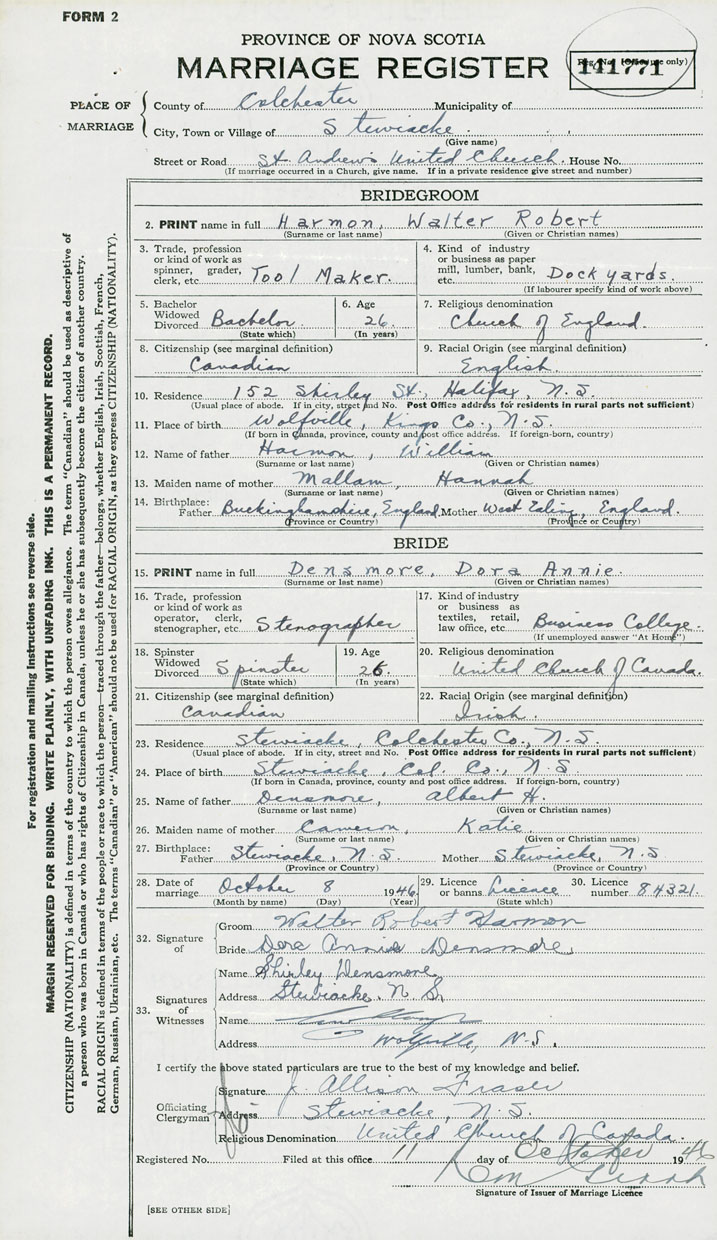 FORM 2
PROVINCE OF NOVA SCOTIA
MARRIAGE REGISTER
Reg. No. (Office use only)
141771
PLACE OF MARRIAGE
County of Colchester Municipality of
City, Town or Village of Stewiacke
(Give name)
Street or Road St. Andrew's United Church. House No.
(If marriage occurred in a Church, give name. If in a private residence give street and number)
BRIDEGROOM
2. PRINT name in full Harmon, Walter Robert
(Surname or last name) (Given or Christian names)
3. Trade, profession or kind of work as spinner, grader, clerk, etc. Tool Maker.
4. Kind of industry or business as paper mill, lumber, bank, etc. Dockyards.
(If labourer specify kind of work above)
5. Bachelor Widowed Divorced Bachelor (State which)
6. Age 26. (In years)
7. Religious denomination Church of England.
8. Citizenship (see marginal definition) Canadian
9. Racial Origin (see marginal definition) English.
10. Residence 152 Shirley St., Halifax, N.S.
(Usual place of abode. If in city, street and No. Post Office address for residents in rural parts not sufficient)
11. Place of birth Wolfville, Kings Co., N.S.
(If born in Canada, province, county and post office address. If foreign-born, country)
12. Name of father Harmon, William
(Surname or last name) (Given or Christian names)
13. Maiden name of mother Mallam, Hannah
(Surname or last name) (Given or Christian names)
14. Birthplace: Father Buckinghamshire, England. Mother West Ealing, England.
(Province or Country) (Province or Country)
BRIDE
15. PRINT name in full Densmore, Dora Annie.
(Surname or last name) (Given or Christian names)
16. Trade, profession or kind of work as operator, clerk, stenographer, etc. Stenographer
17. Kind of industry or business as textiles, retail, law office, etc. Business College.
(If unemployed answer "At Home")
18. Spinster Widowed Divorced Spinster (State which)
19. Age 26. (In years)
20. Religious denomination United Church of Canada.
21. Citizenship (see marginal definition) Canadian
22. Racial Origin (see marginal definition) Irish.
23. Residence Stewiacke, Colchester Co., N.S.
(Usual place of abode. If in city, street and No. Post Office address for residents in rural parts not sufficient)
24. Place of birth Stewiacke, Col. Co., N.S
(If born in Canada, province, county and post office address. If foreign-born, country)
25. Name of father Densmore, Albert H.
(Surname or last name) (Given or Christian names)
26. Maiden name of mother Cameron, Katie.
(Surname or last name) (Given or Christian names)
27. Birthplace: Father Stewiacke, N.S. Mother Stewiacke, N.S
(Province or Country) (Province or Country)
28. Date of marriage October 8 1946. 29. Licence or banns Licence 30. Licence number 84321.
(Month by name) (Day) (Year) (State which)
32. Signature of
Groom Walter Robert Harmon
Bride Dora Annie Densmore
33. Signatures of Witnesses
Name Shirley Densmore
Address Stewiacke, N.S.
Name
Address Wolfville, N.S.
I certify the above stated particulars are true to the best of my knowledge and belief.
Officiating Clergyman
Signature J. Allison Fraser
Address Stewiacke, N.S.
Religious Denomination United Church of Canada.
Registered No. Filed at this office 11 day of October 1946
Signature of Issuer of Marriage Licence
[SEE OTHER SIDE]
For registration and mailing instructions see reverse side.
MARGIN RESERVED FOR BINDING. WRITE PLAINLY, WITH UNFADING INK. THIS IS A PERMANENT RECORD.
CITIZENSHIP (NATIONALITY) is defined in terms of the country to which the person owes allegiance. The term "Canadian" should be used as descriptive of
a person who was born in Canada or who has rights of Citizenship in Canada, unless he or she has subsequently become the citizen of another country.
RACIAL ORIGIN is defined in terms of the people or race to which the person—traced through the father—belongs, whether English, Irish, Scottish, French,
German, Russian, Ukrainian, etc. The terms "Canadian" or "American" should not be used for RACIAL ORIGIN, as they express CITIZENSHIP (NATIONALITY).